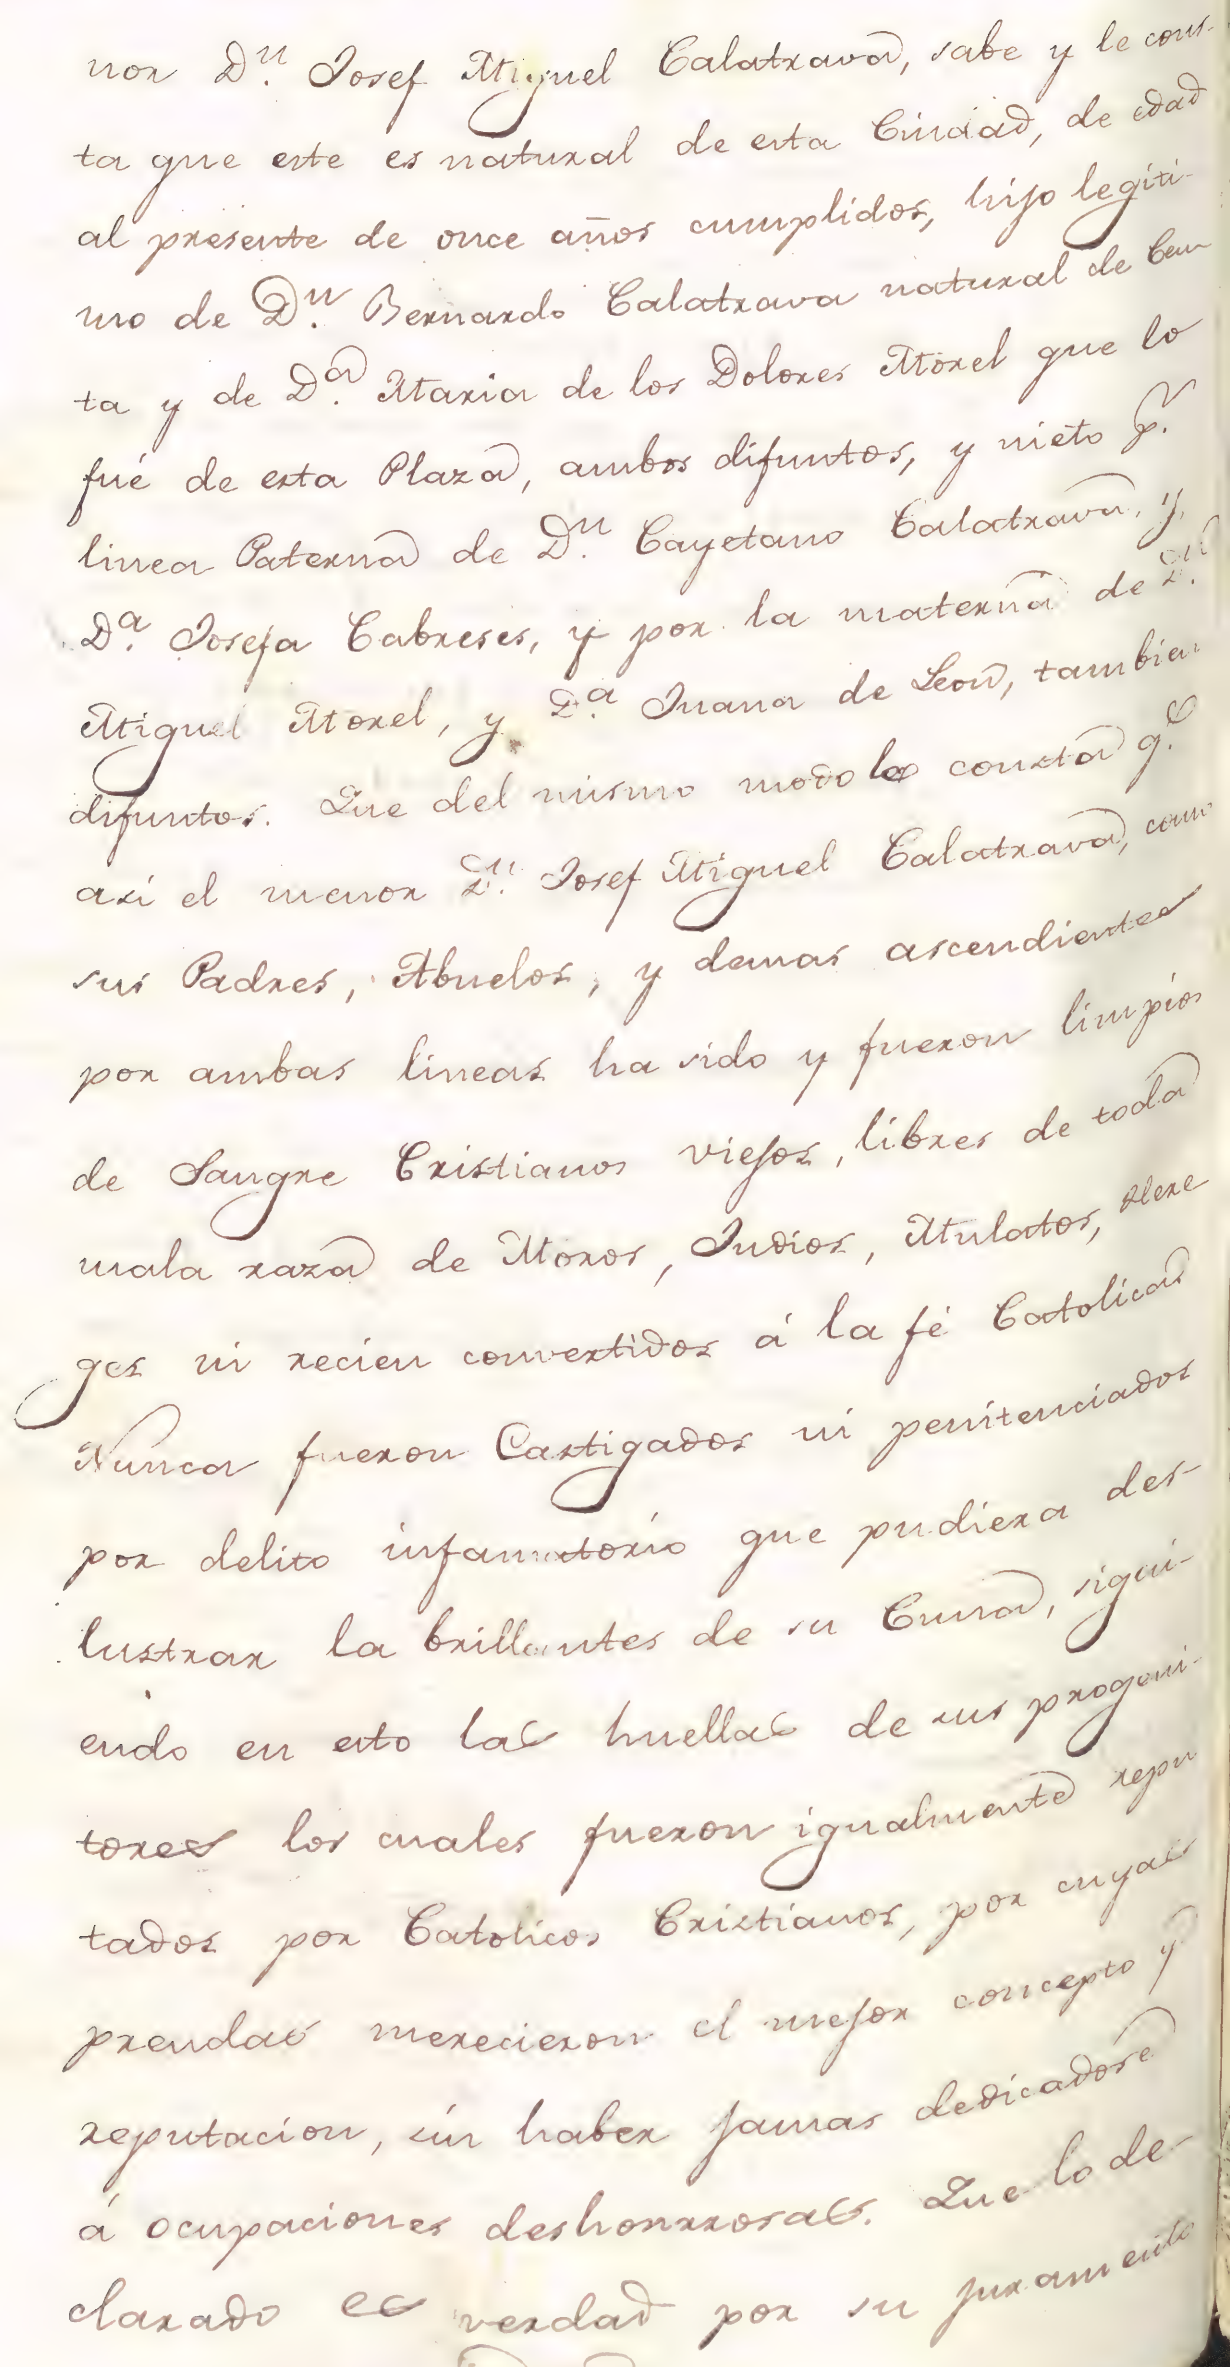 nor Dn. Josef Miguel Calatrava, sabe y le cons-
ta que este es natural de esta Ciudad, de edad
al presente de once años cumplidos, hijo legiti-
mo de Dn. Bernardo Calatrava natural de Ceu
ta y de Da. Maria de los Dolores Morel que lo
fué de esta Plaza, ambos difuntos, y nieto pr.
linea Paterna de Dn. Cayetano Calatrava, y
Da. Josefa Cabreses, y por la materna de Dn.
Miguel Morel, y Da. Juana de Leon, tambien
difuntos. Que del mismo modo le consta qe.
asi el menor Dn. Josef Miguel Calatrava, como
sus Padres, Abuelos, y demas ascendientes
por ambas lineas ha sido y fueron limpios
de Sangre Cristianos viejos, libres de toda
mala raza de Moros, Judios, Mulatos, Here
ges ni recien convertidos á la fé Catolica
Nunca fueron Castigados ni penitenciados
por delito infamatorio que pudiera des-
lustrar la brillantes de su Cuna, sigui-
endo en esto las huellas de sus progeni-
tores los cuales fueron igualmente repu
tados por Catolicos Cristianos, por cuyas
prendas merecieron el mejor concepto y
reputacion, sin haber jamas dedicadose
á ocupaciones deshonrrosas. Que lo de-
clarado es verdad por su juramento